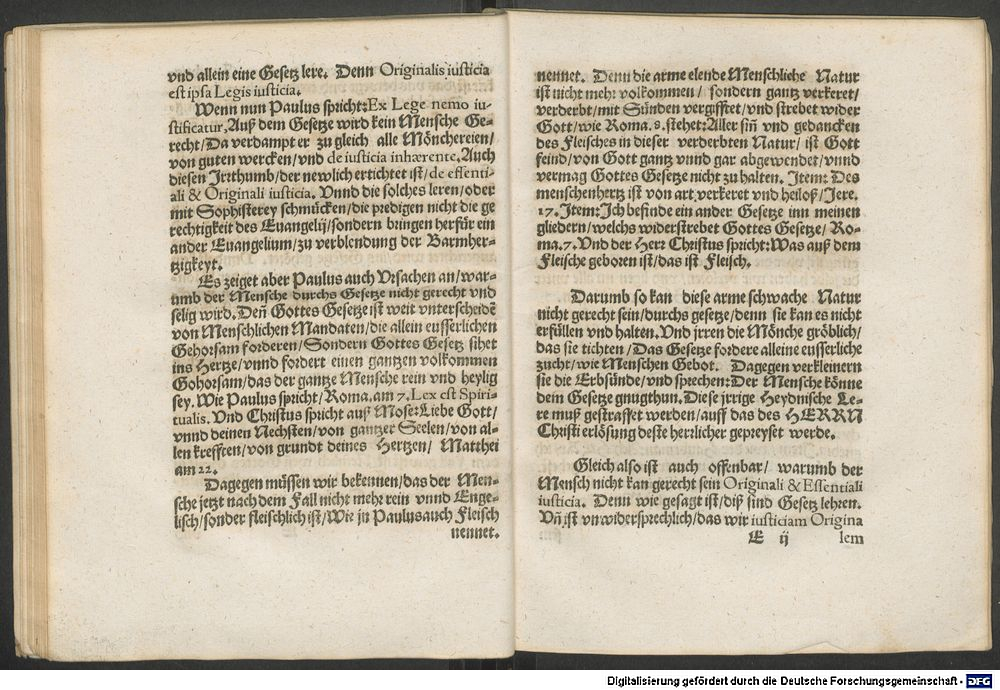 vnd allein eine Gesetz lere. Denn Originalis iusticia
est ipsa Legis iusticia.
Wenn nun Paulus spricht: Ex Lege nemo iu-
stificatur. Auß dem Gesetze wird kein Mensche Ge-
recht/Da verdampt er zu gleich alle Mönchereien/
von guten wercken/vnd de iusticia inhærente. Auch
diesen Irrthumb/der newlich ertichtet ist/de essenti-
ali & Originali iusticia. Vnnd die solches leren/oder
mit Sophisterey schmücken/die predigen nicht die ge
rechtigkeit des Euangelij/sondern bringen herfür ein
ander Euangelium/zu verblendung der Barmher-
tzigkeyt.
Es zeiget aber Paulus auch Vrsachen an/war-
umb der Mensche durchs Gesetze nicht gerecht vnd
selig wird. Deñ Gottes Gesetze ist weit vnterscheidē
von Menschlichen Mandaten/die allein eusserlichen
Gehorsam forderen/Sondern Gottes Gesetz sihet
ins Hertze/vnnd fordert einen gantzen volkommen
Gohorsam/das der gantze Mensche rein vnd heylig
sey. Wie Paulus spricht/Roma. am 7. Lex est Spiri-
tualis. Vnd Christus spricht auß Mose: Liebe Gott/
vnnd deinen Nechsten/von gantzer Seelen/von al-
len krefften/von grundt deines Hertzen/ Matthei
am 22.
Dagegen müssen wir bekennen/das der Men-
sche jetzt nach dem Fall nicht mehr rein vnnd Enge-
lisch/sonder fleischlich ist/Wie jn Paulus auch Fleisch
nennet.
nennet. Denn die arme elende Menschliche Natur
ist nicht mehr volkommen/ sondern gantz verkeret/
verderbt/mit Sünden vergifftet/vnd strebet wider
Gott/wie Roma. 8. stehet: Aller siñ vnd gedancken
des Fleisches in dieser verderbten Natur/ ist Gott
feind/von Gott gantz vnnd gar abgewendet/vnnd
vermag Gottes Gesetze nicht zu halten. Item: Des
menschenhertz ist von art verkeret vnd heiloß/Jere.
17. Item: Ich befinde ein ander Gesetze inn meinen
gliedern/welchs widerstrebet Gottes Gesetze/ Ro-
ma. 7. Vnd der Herr Christus spricht: Was auß dem
Fleische geboren ist/das ist Fleisch.
Darumb so kan diese arme schwache Natur
nicht gerecht sein/durchs gesetze/denn sie kan es nicht
erfüllen vnd halten. Vnd jrren die Mönche gröblich/
das sie tichten/Das Gesetze fordere alleine eusserliche
zucht/wie Menschen Gebot. Dagegen verkleinern
sie die Erbsünde/vnd sprechen: Der Mensche könne
dem Gesetze gnugthun. Diese jrrige Heydnische Le-
re muß gestraffet werden/auff das des HERRN
Christi erlösung deste herrlicher gepreyset werde.
Gleich also ist auch offenbar/ warumb der
Mensch nicht kan gerecht sein Originali & Essentiali
iusticia. Denn wie gesagt ist/diß sind Gesetz lehren.
Vñ ist vnwidersprechlich/das wir iusticiam Origina
E ij lem
Digitalisierung gefördert durch die Deutsche Forschungsgemeinschaft - DFG